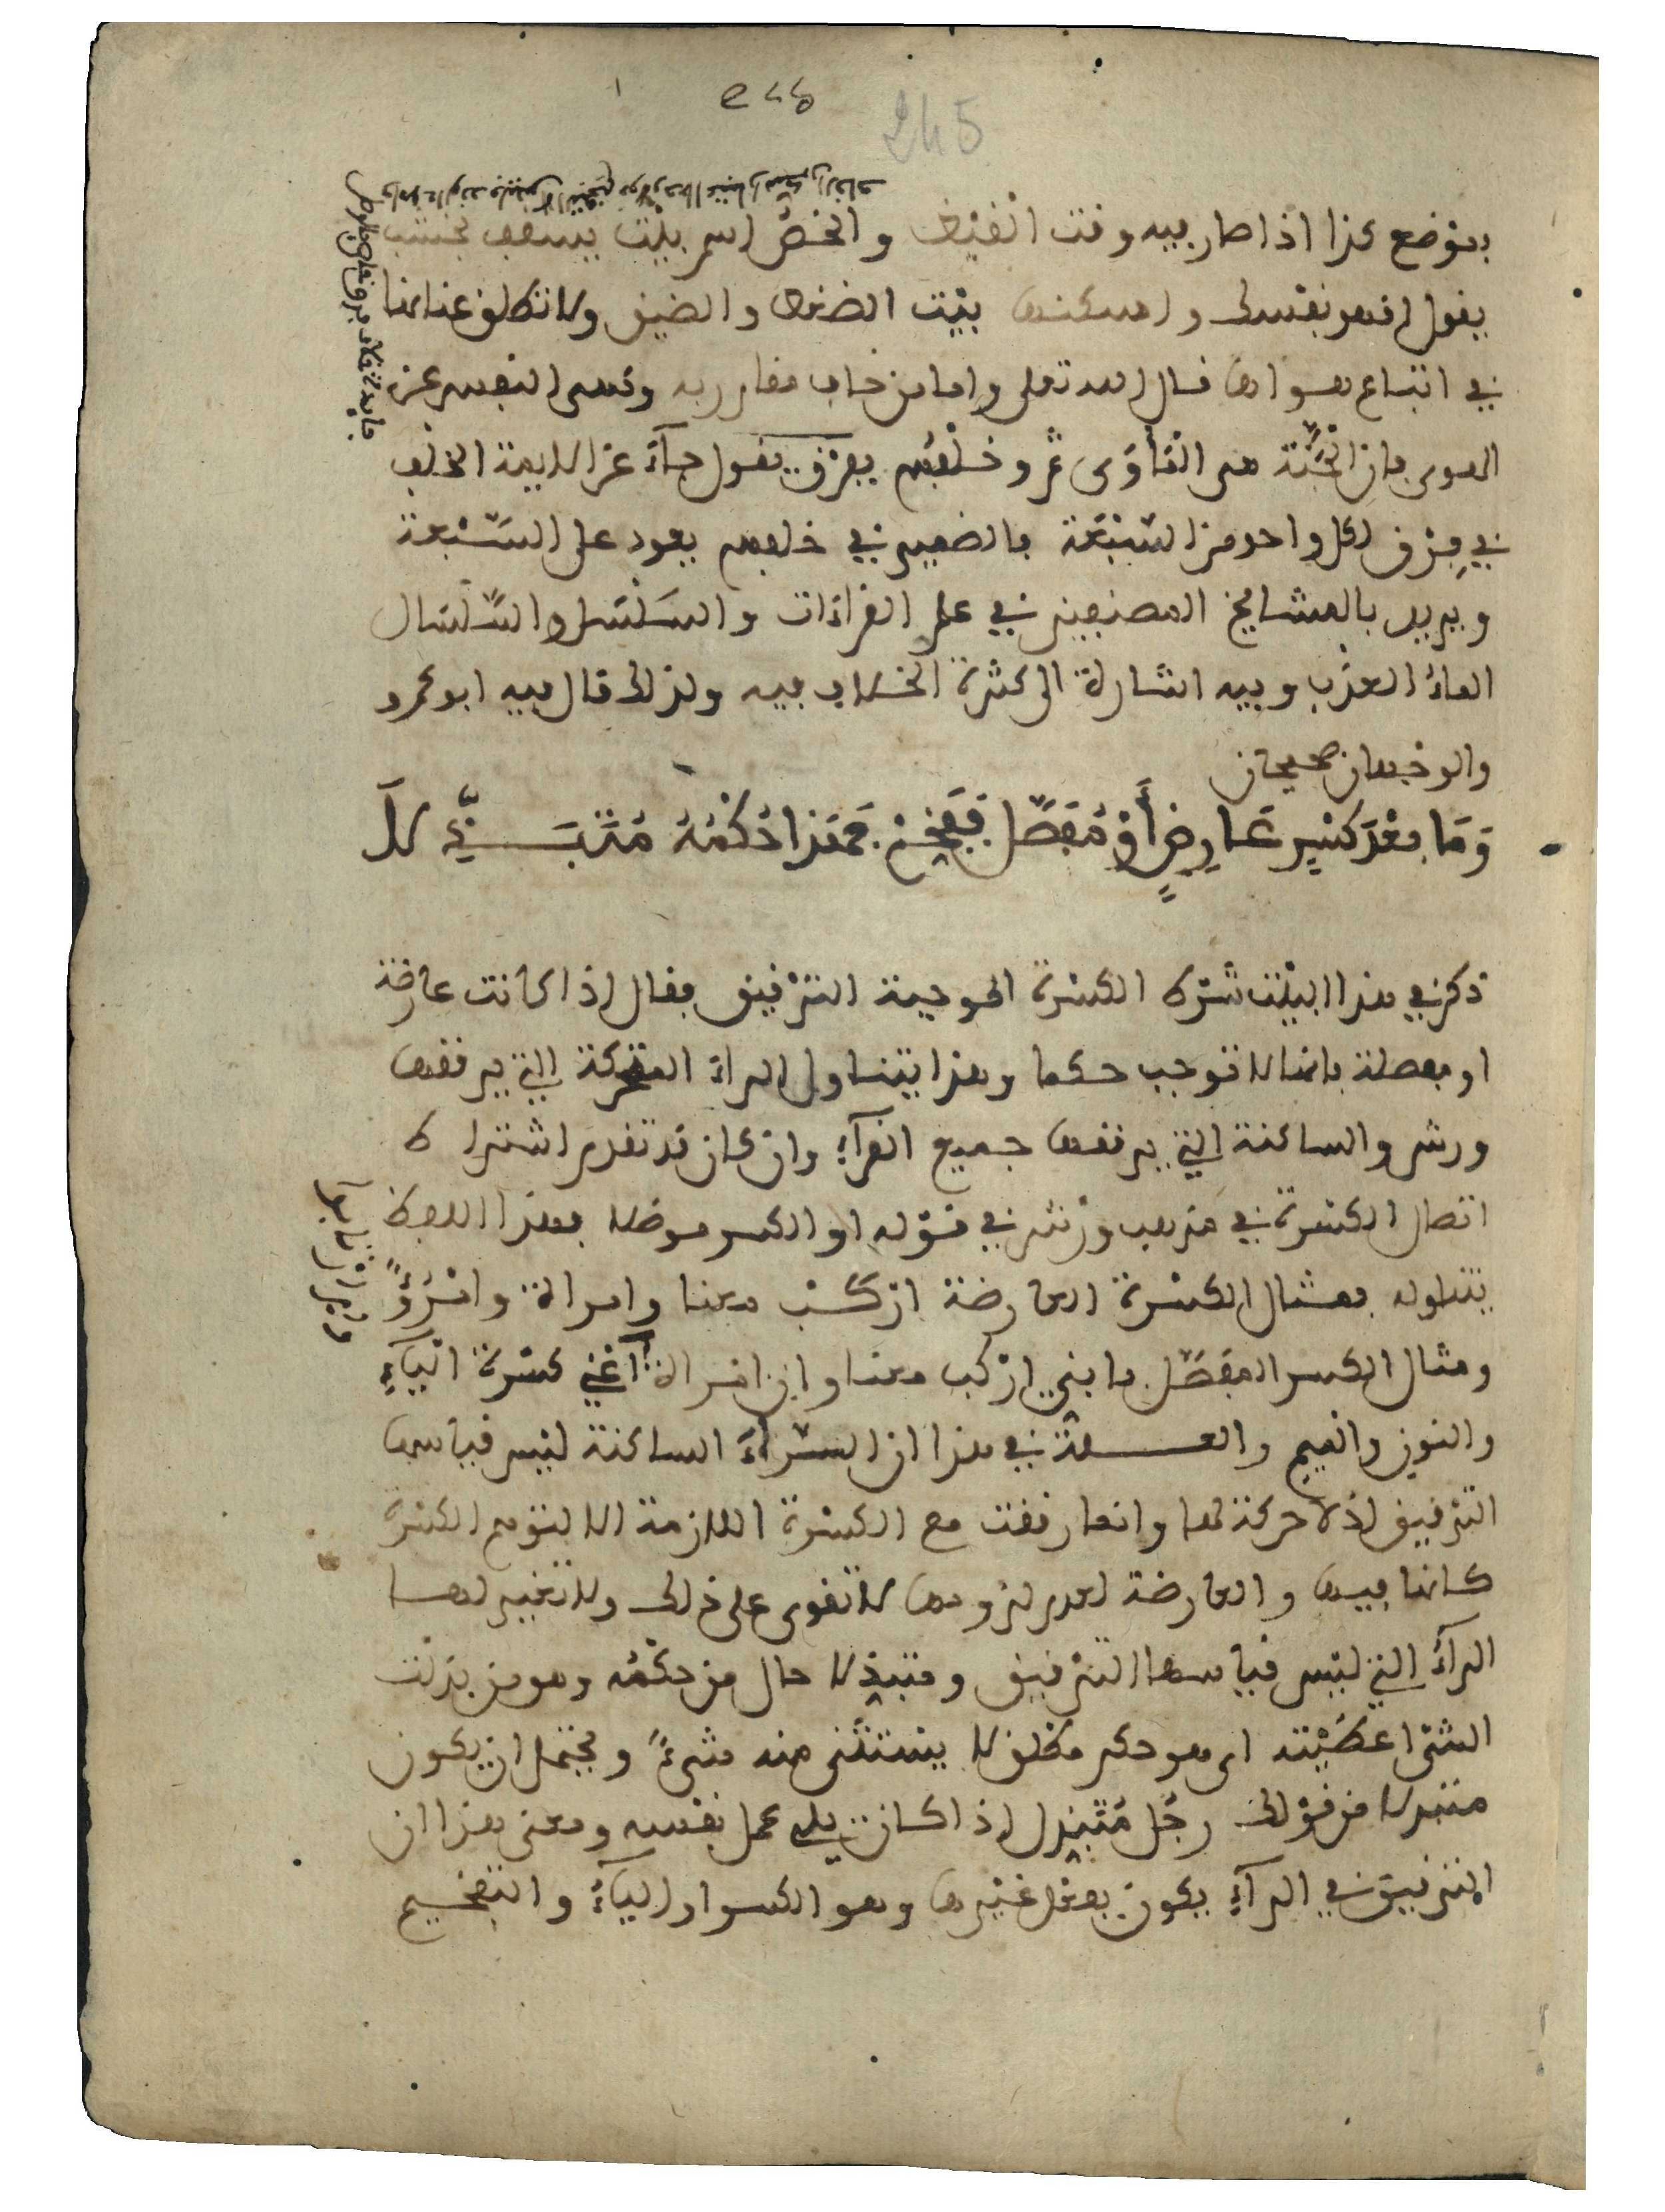 245
بموضع كذا اذا صار فيه وقت القيظ والخص اسم بيت يسقف بخشب
يقول اقم نفسك واسكنها بيت الضغط والضيق ولا تطلق عنانها
في اتباع هواها قال الله تعلى واما من خاف مقام ربه ونهى النفس عن
الهوى فان الجنة هى المأوى ثم وخلفهم بفرق يقول جآء عن الايمة الخلف
في فرق لكل واحد من السبعة فالضمير في خلفهم يعود على السبعة
ويريد بالمشايخ المصنفين في علم القراءات والسلسل والسلسال
الماء العذب وفيه اشارة الى كثرة الخلاف فيه ولذلك قال فيه ابو عمرو
والوجهان صحيحان
وَمَا بَعْدَ كَسْرٍ عَارِضٍ أَوْ مُفَصَّلٍ فَفَخِّمْ فَهَذَا حُكْمُهُ مُتَبَذِّلاَ
ذكر في هذا البيت شرط الكسرة الموجبة الترقيق فقال اذا كانت عارضة
او مفصلة فانها لا توجب حكما وهذا يتناول الراء المتحركة التي يرققها
ورش والساكنة التي يرققها جميع القرآء وان كان قد تقدم اشتراط
اتصال الكسرة في مذهب ورش في قوله او الكسر موصلا فهذا اللفظ
يتناوله فمثال الكسرة العارضة اركب معنا وامراة وامرؤ
ومثال الكسر المفصل يا بني اركب معنا وان امراة اعني كسرة اليآء
والنون والميم والعلة في هذا ان الرآء الساكنة ليس قياسها
الترقيق اذ لا حركة لها وانما رققت مع الكسرة اللازمة لتوهم الكسرة
كانها فيها والعارضة لعدم لزومها لا تقوى على ذلك ولا تغير لها
الرآء التي ليس قياسها الترقيق ومتبذلا حال من حكمه وهو من بذلت
الشئ اعطيته اى هو حكم مطلق لا يستثنى منه شىء ويحتمل ان يكون
متبذلا من قولك رجل متبذل اذا كان يلي عمل نفسه ومعنى هذا ان
الترقيق في الرآء يكون بعمل غيرها وهو الكسر او اليآء والتفخيم